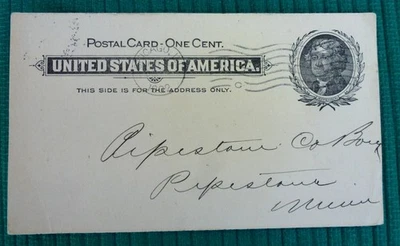 POSTAL CARD. ONE CENT.
UNITED STATES OF AMERICA.
THIS SIDE IS FOR THE ADDRESS ONLY.
Pipestone Co Bank
Pipestone
Minn